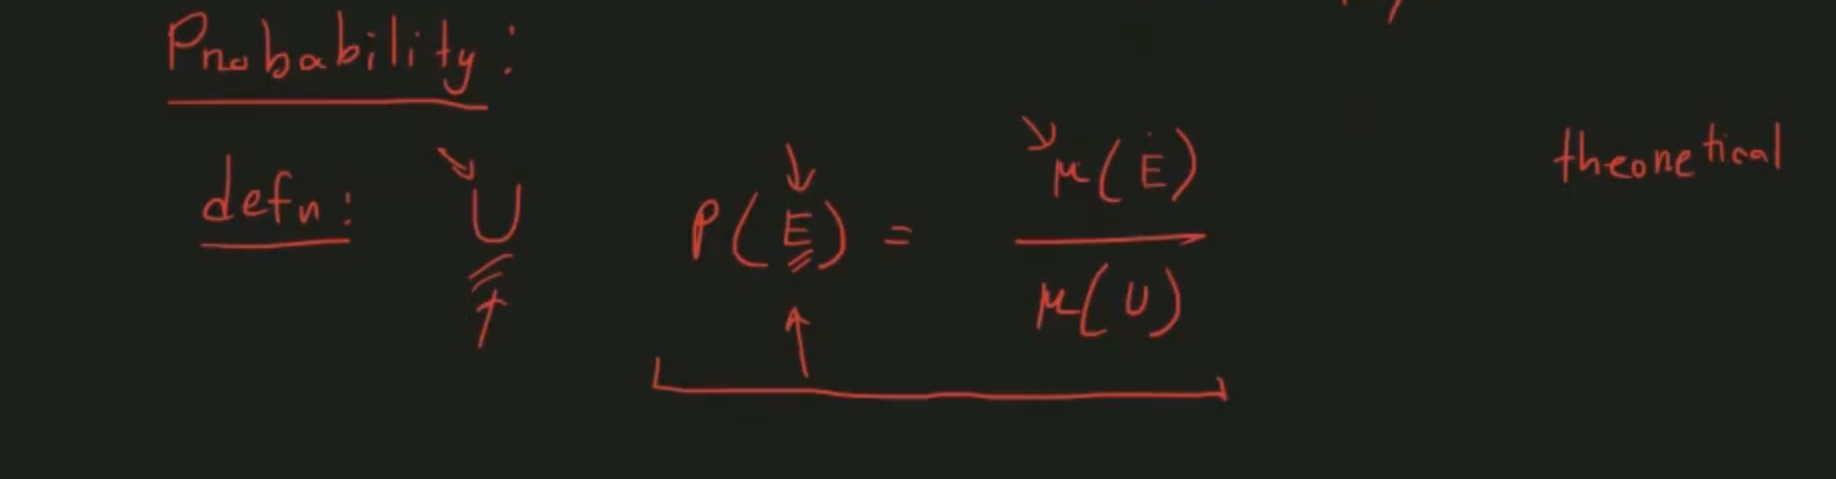 Probability:
defn: U P(E) = μ(E) / μ(U)
theoretical